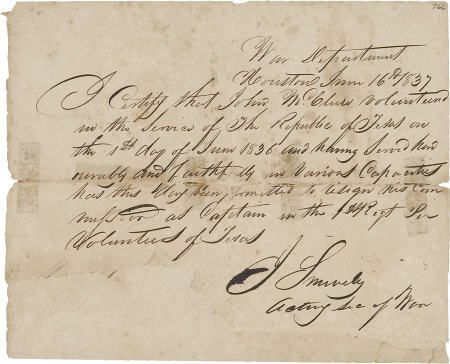 766
War Department
Houston June 16th 1837
I Certify that John McClure Volunteered
in the Service of The Republic of Texas on
the 1st day of June 1836 and having Served hon
orably and faithfully in Various Capacities
has this day been permitted to resign his Com
mission as Captain in the 1st Regt Per
Volunteers of Texas
J Snively
Acting Sec of War